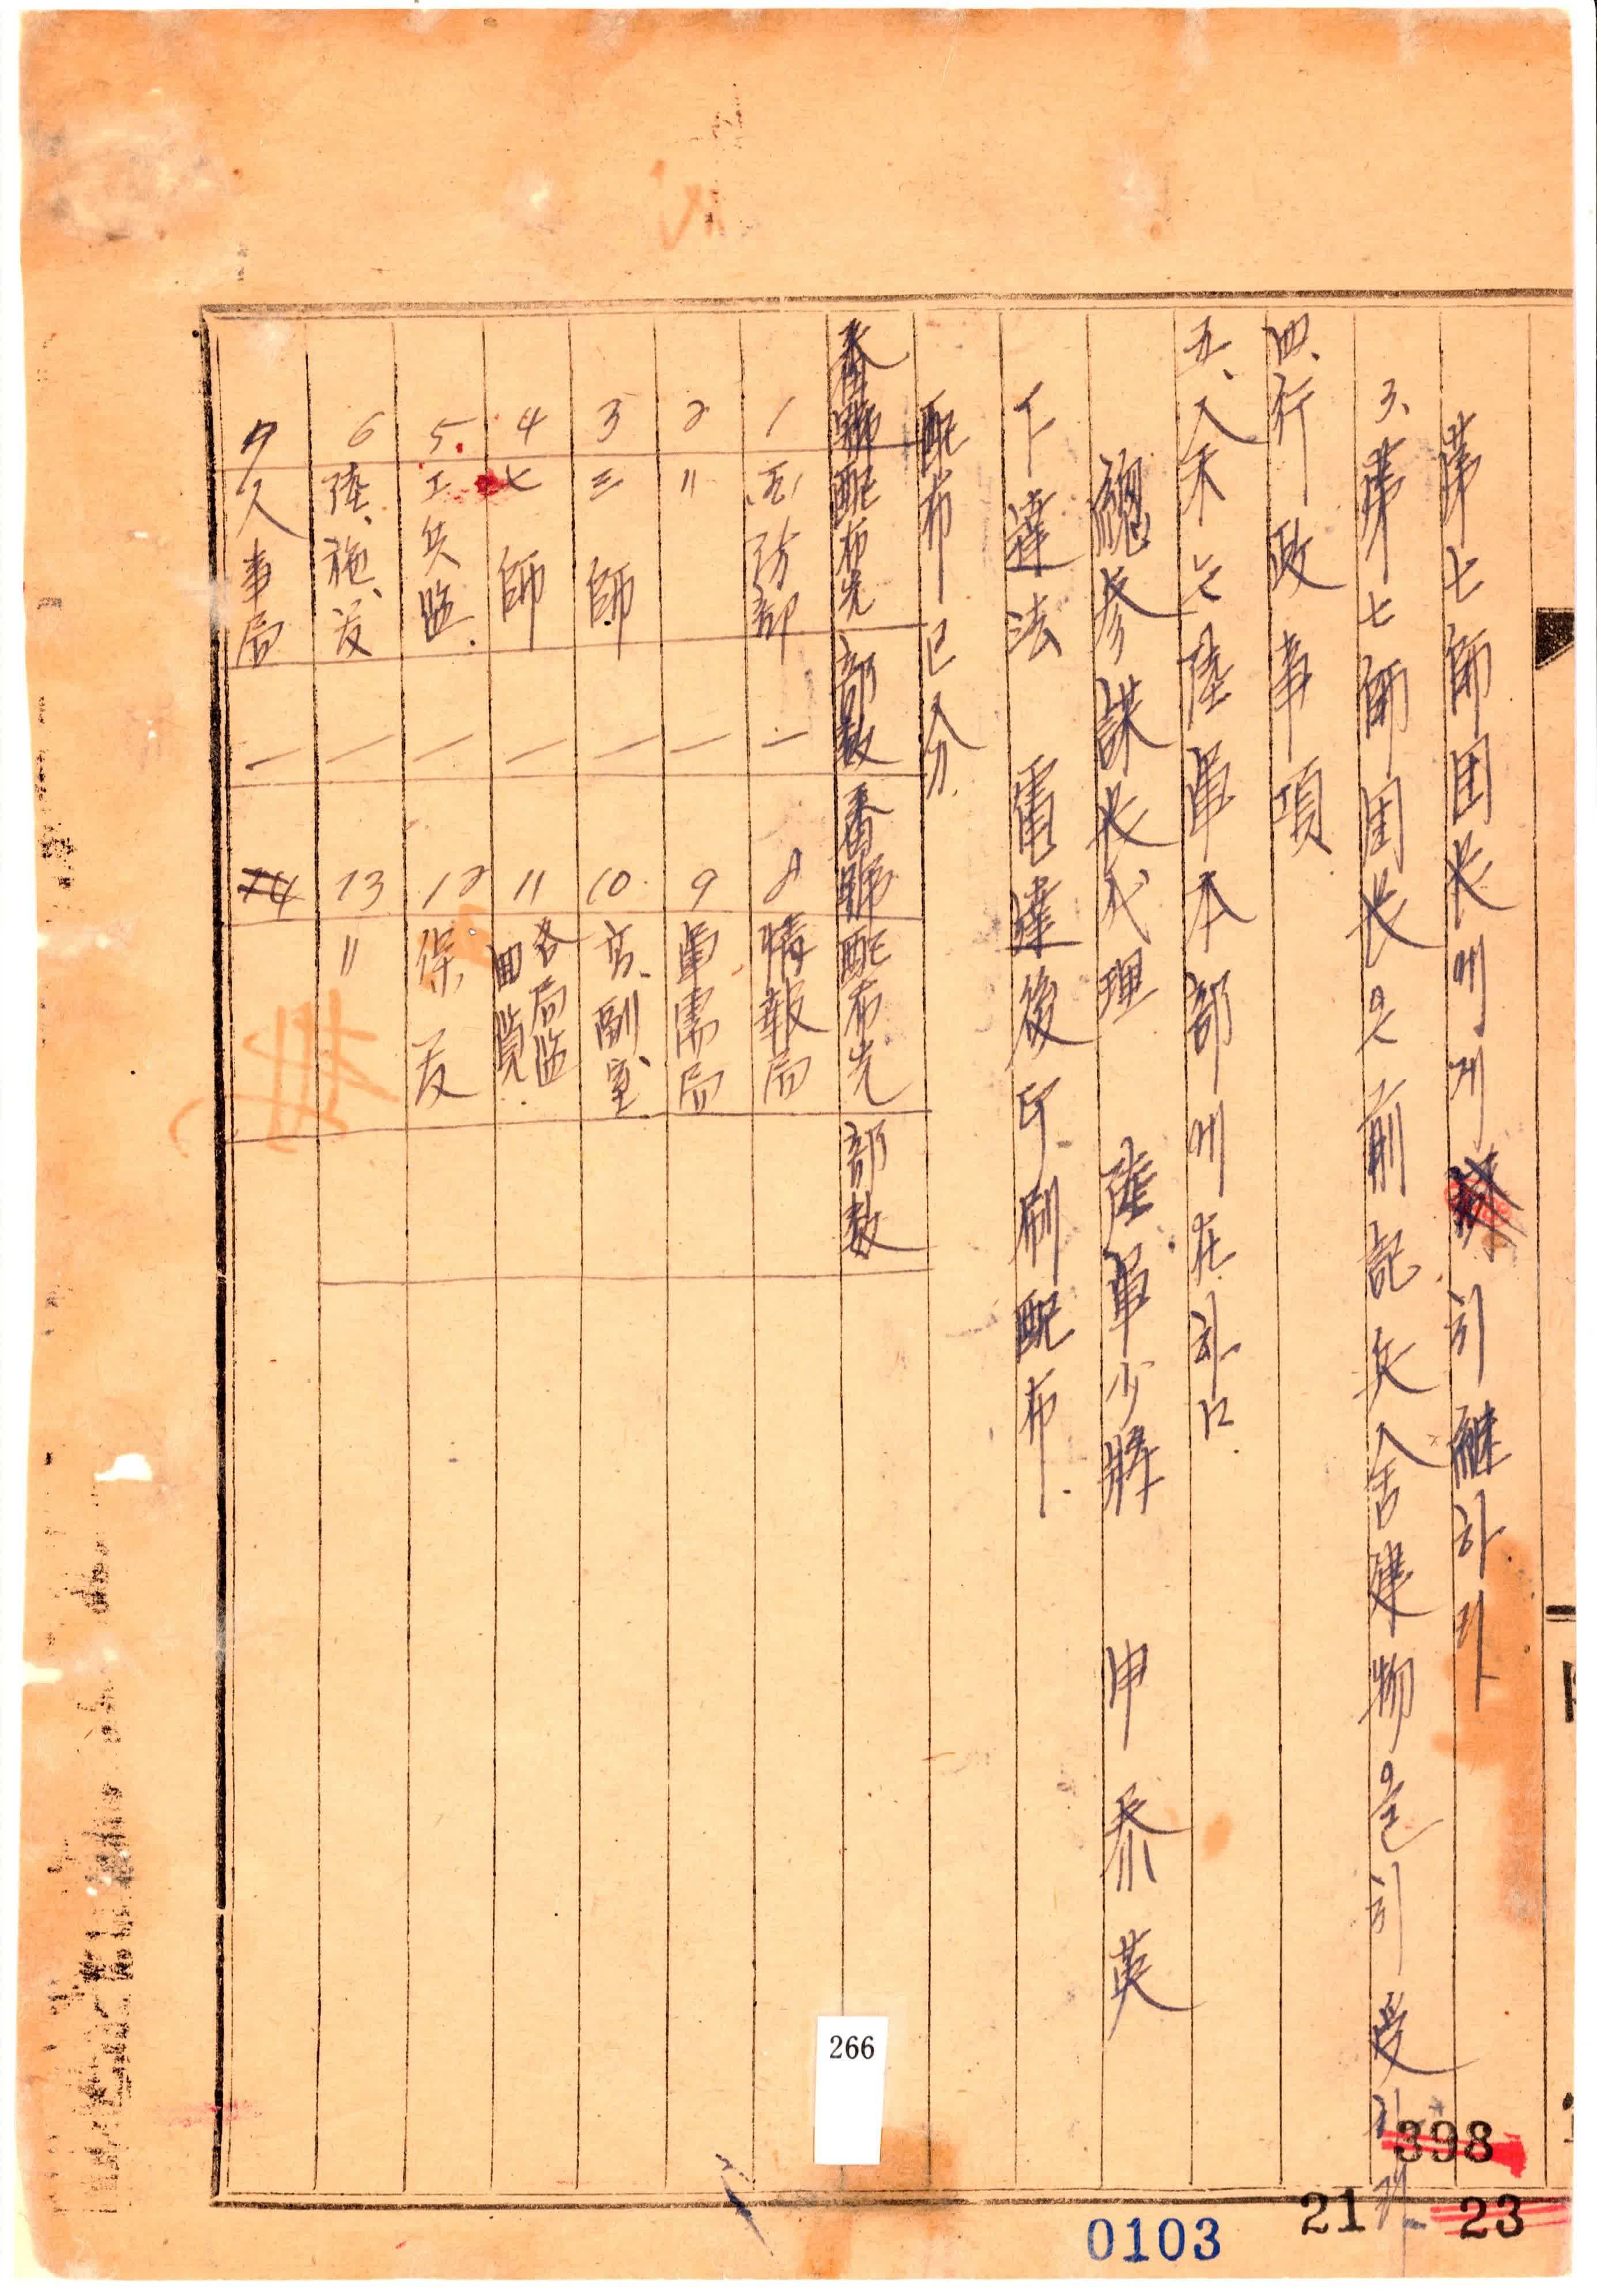 第七師団長에게 引継하라
3、第七師団長은 前記 兵舍建物을 引受하라
四、行政事項
五、人禾는 陸軍本部에 在하口.
總參謀長代理 陸軍少將 申泰英
下達法 電達後印刷配布.
配布区分.
番號 配布先 部数 番號 配布先 部数
1 国防部 一 8 情報局
2 〃 一 9 軍需局
3 三師 一 10. 高、副室、
4 七師 一 11 各局監回覧.
5. 工兵監. 一 12 保、友
6 陸、施、友 一 13 〃
7 人事局 一 14
266
398
21
23
0103